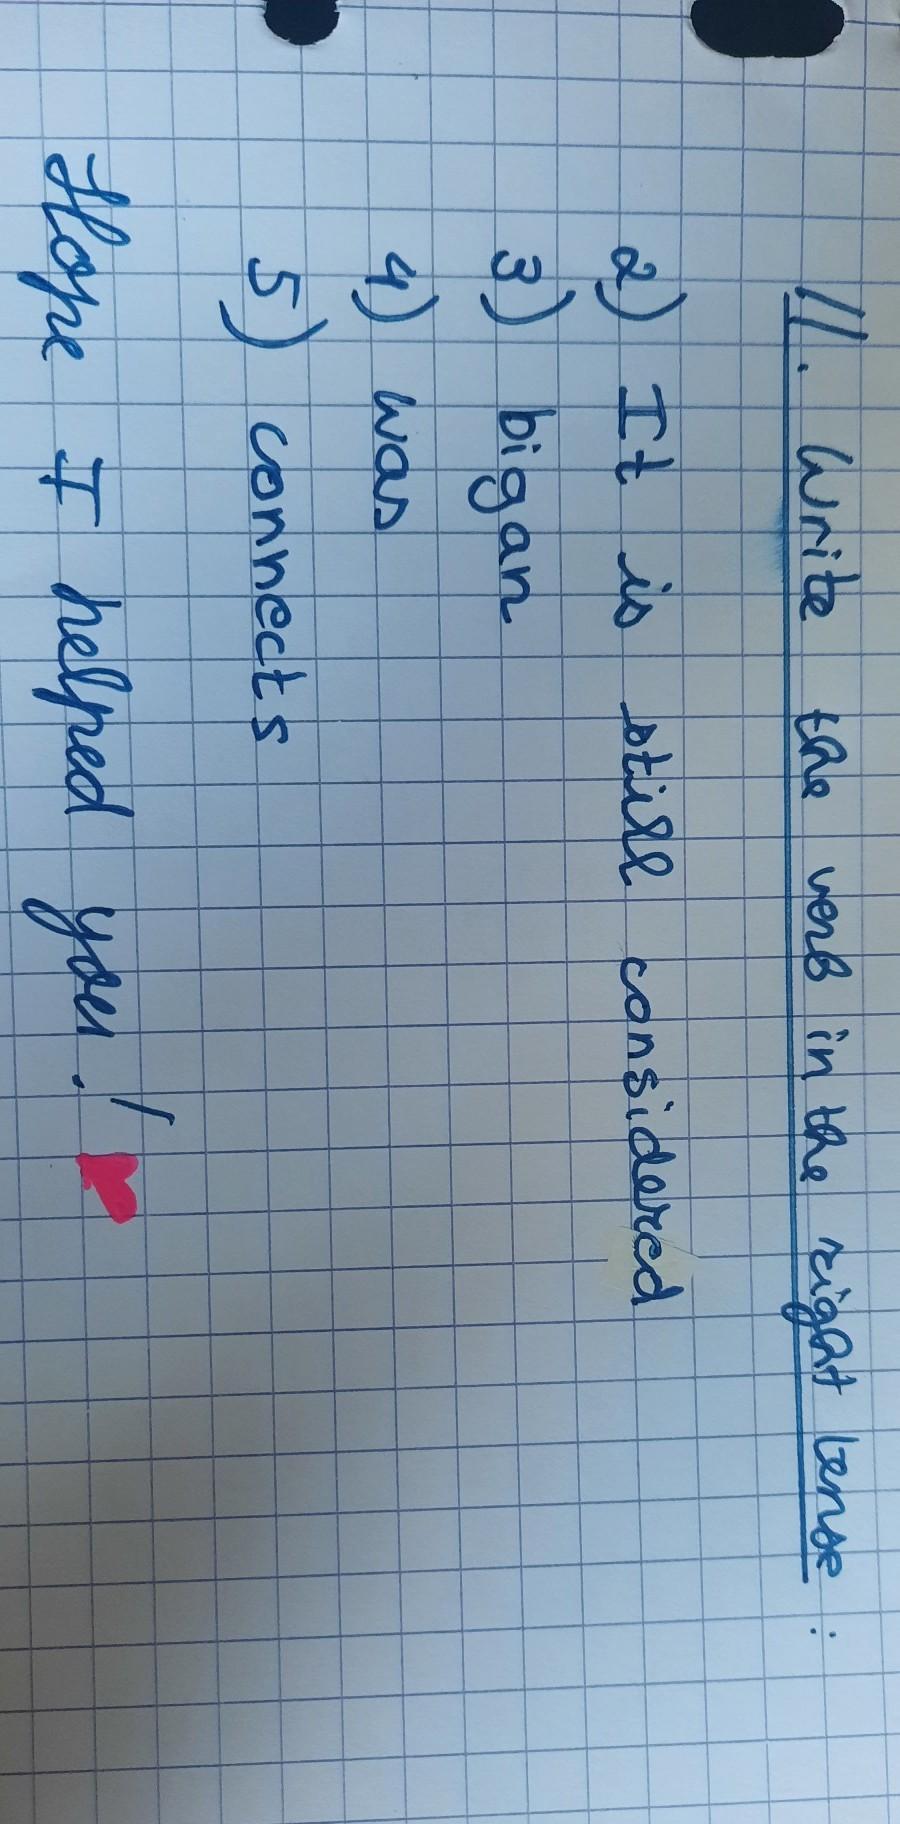 II. Write the verb in the right tense:
2) It is still considered
3) bigan
4) was
5) connects
Hope I helped you!